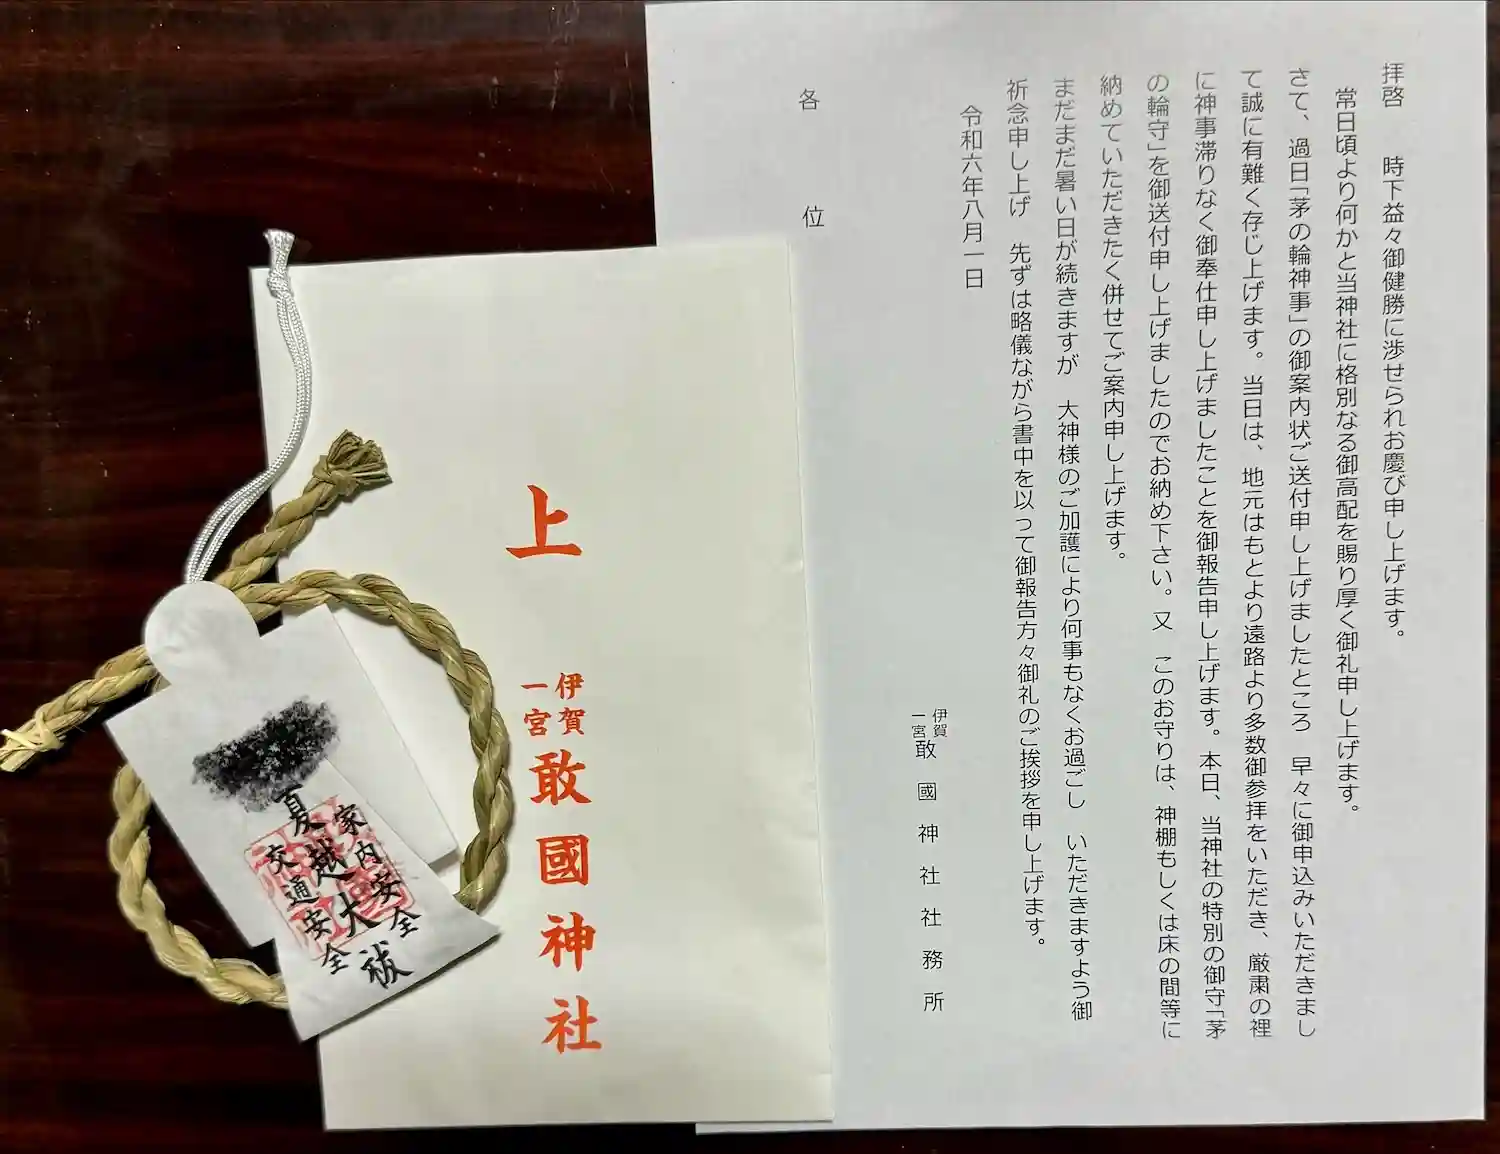 拝啓　時下益々御健勝に渉せられお慶び申し上げます。
常日頃より何かと当神社に格別なる御高配を賜り厚く御礼申し上げます。
さて、過日「茅の輪神事」の御案内状ご送付申し上げましたところ　早々に御申込みいただきまし
て誠に有難く存じ上げます。当日は、地元はもとより遠路より多数御参拝をいただき、厳粛の裡
に神事滞りなく御奉仕申し上げましたことを御報告申し上げます。本日、当神社の特別の御守「茅
の輪守」を御送付申し上げましたのでお納め下さい。又　このお守りは、神棚もしくは床の間等に
納めていただきたく併せてご案内申し上げます。
まだまだ暑い日が続きますが　大神様のご加護により何事もなくお過ごし　いただきますよう御
祈念申し上げ　先ずは略儀ながら書中を以って御報告方々御礼のご挨拶を申し上げます。
令和六年八月一日
伊賀
一宮
敢國神社社務所
各位
上
伊賀
一宮
敢國神社
家内安全
夏越大祓
交通安全